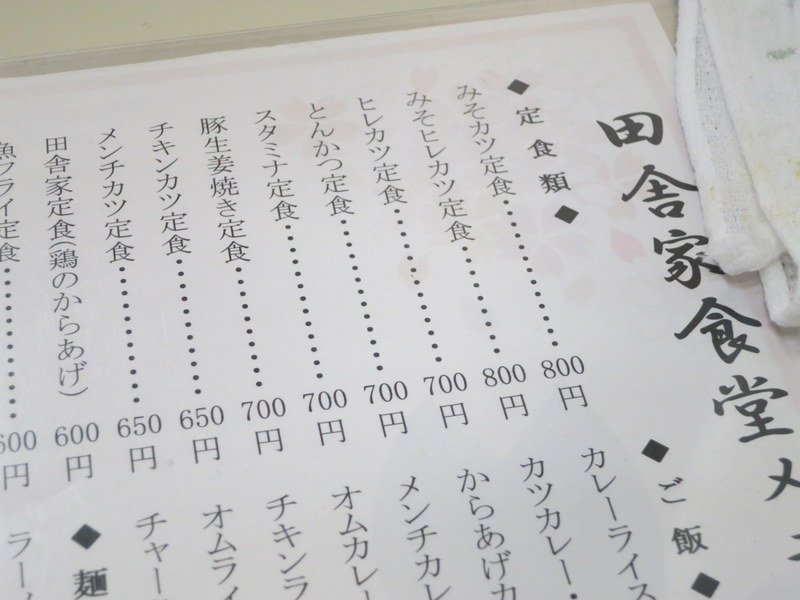 田舎家食堂メ
◆定食類◆
みそカツ定食・・・・・・・・・・800円
みそヒレカツ定食・・・・・・・・800円
ヒレカツ定食・・・・・・・・・・700円
とんかつ定食・・・・・・・・・・700円
スタミナ定食・・・・・・・・・・700円
豚生姜焼き定食・・・・・・・・・700円
チキンカツ定食・・・・・・・・・650円
メンチカツ定食・・・・・・・・・650円
田舎家定食(鶏のからあげ)600円
魚フライ定食・・・・・・・・・・600円
◆ご飯◆
カレーライス
カツカレー・
からあげカ
メンチカレ
オムカレー
チキンラ
オムライ
チャー
◆麺
ラー